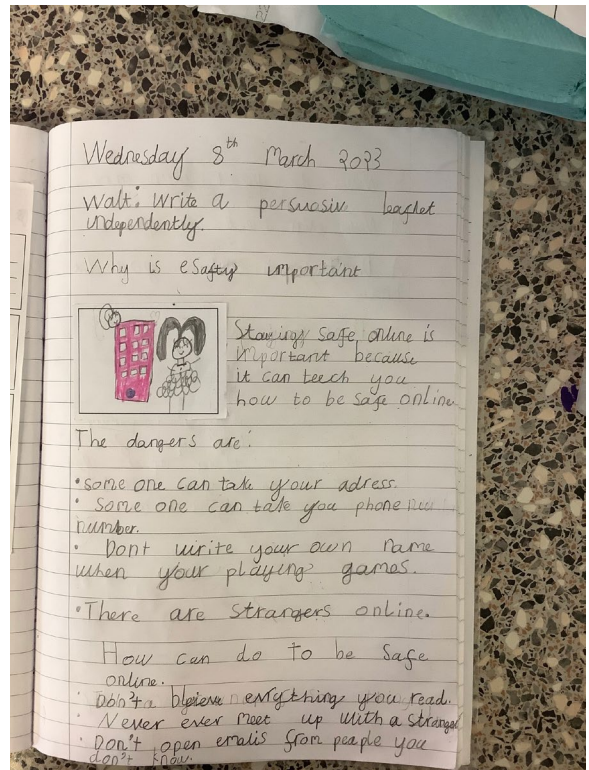 Wednesday 8th March 2023
Walt: write a persuasiv leaflet
independently.
Why is eSafty important
Staying safe online is
important because
it can teech you
how to be safe online
The dangers are:
• some one can take your adress.
• Some one can take you phone
number.
• Dont write your own name
when your playing games.
• There are strangers online.
How can do to be safe
online.
• everything you read.
• Never ever meet up with a stranger
• Don't open emalis from people you
don't know.